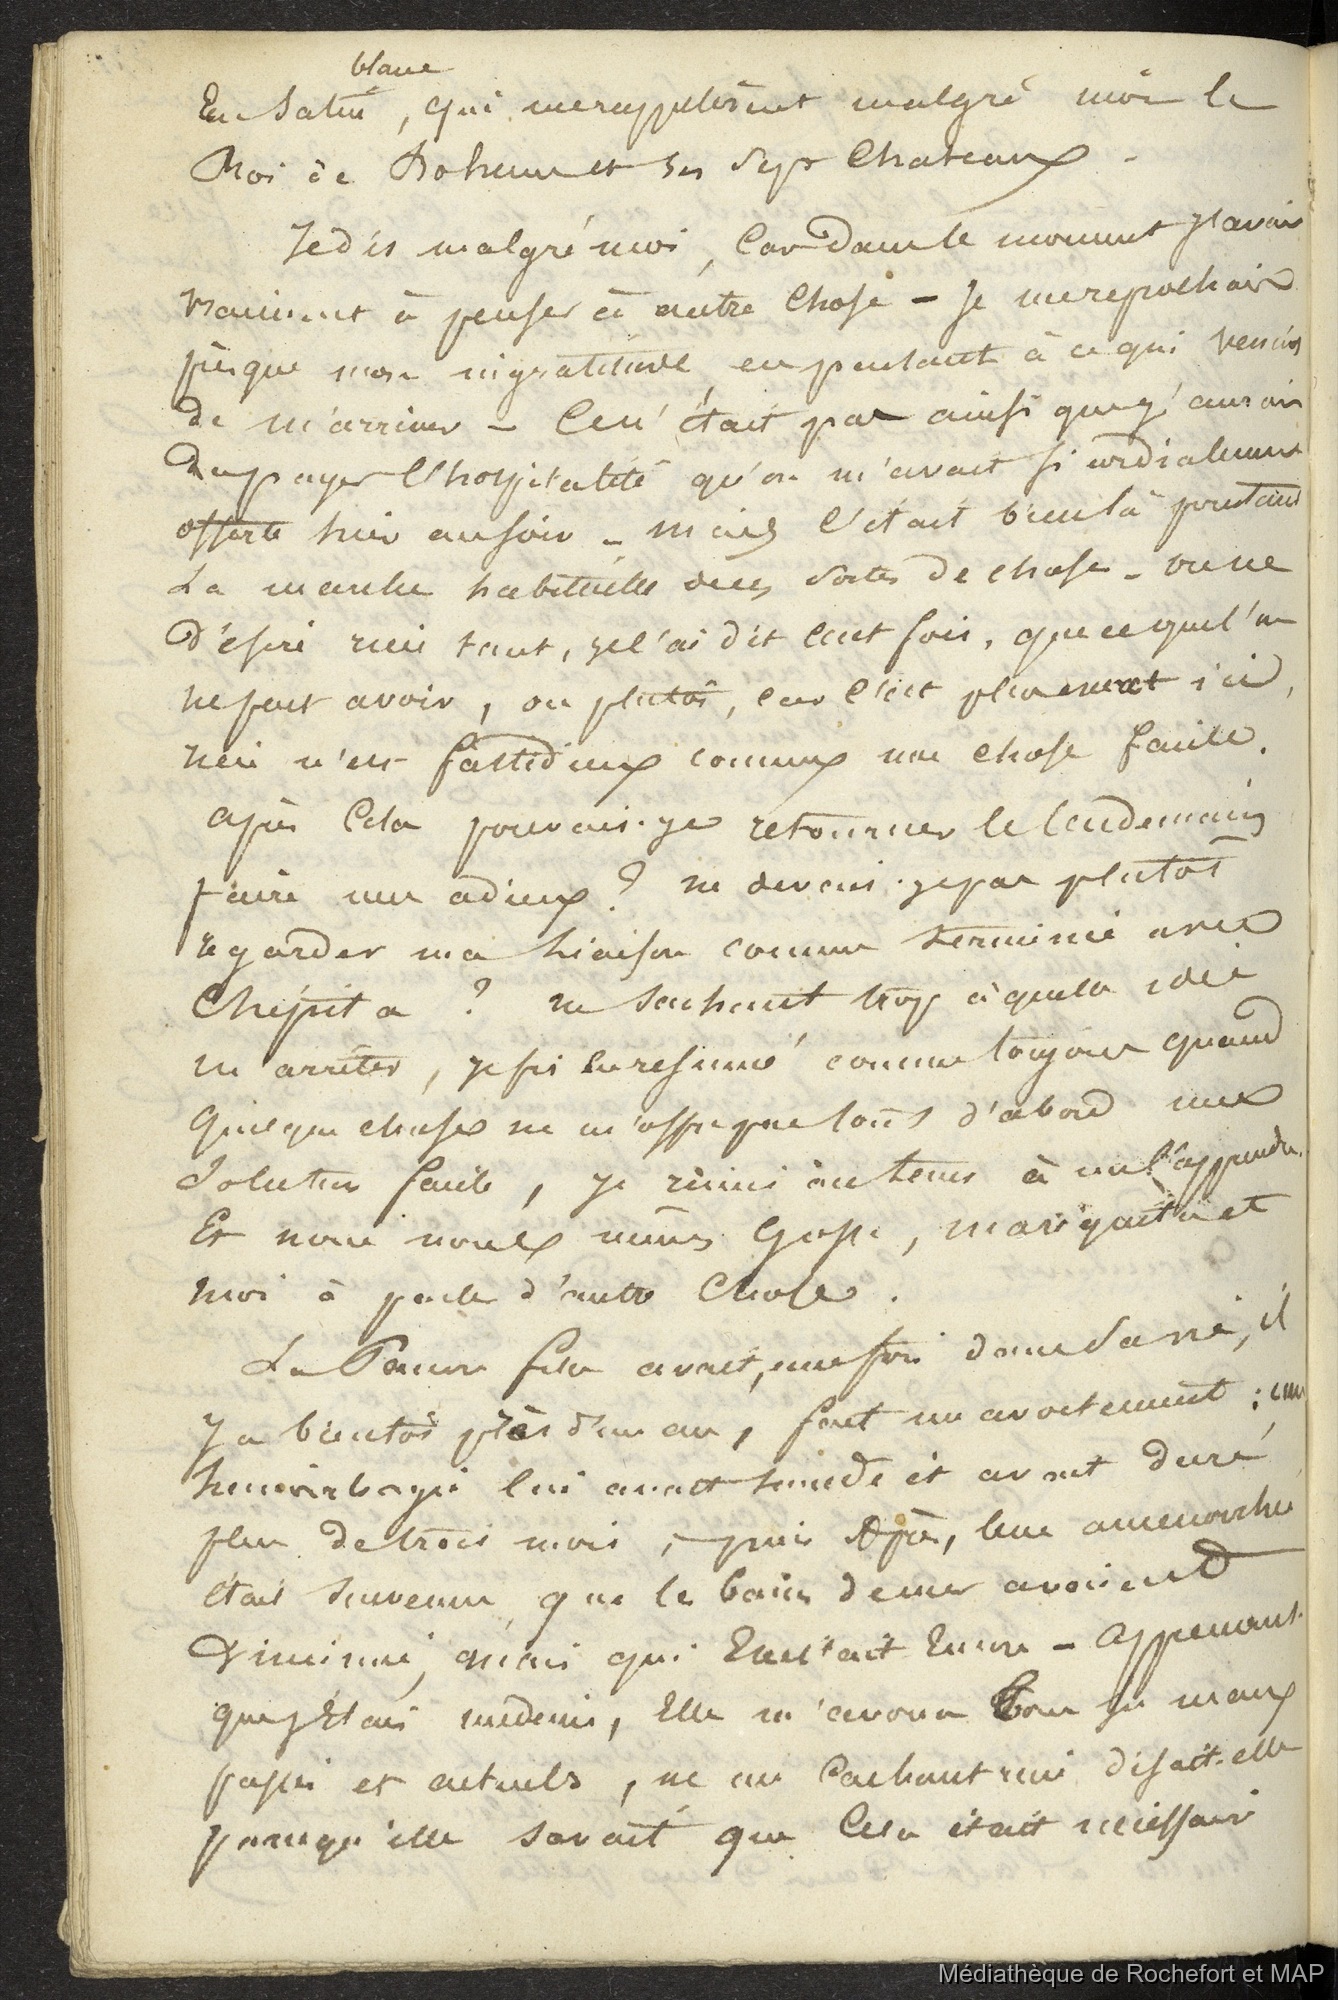 blanc
En Satin, qui me rappelèrent malgré moi le
Roi de Boheme et ses Sept Chateaux.
Je dis malgré moi, Car dans le moment j'avais
vraiment à penser à autre Chose – Je me reprochais
presque mon ingratitude, en pensant à ce qui venait
de m'arriver – Ce n'était pas ainsi que j'aurais
du payer l'hospitalité qu'on m'avait si cordialement
offerte hier au soir – mais C'était bien là pourtant
La marche habituelle de ces sortes de chose – on ne
Désire rien tant, je l'ai dit Cent fois, que ce que l'on
ne peut avoir, ou plutôt, car C'est plus exact ici,
rien n'est fastidieux comme une chose facile.
après Cela pouvais-je retourner le lendemain
faire mes adieux ? ne devais-je pas plutôt
regarder ma liaison comme terminée avec
Chépita ? ne Sachant trop à quelle idée
m'arrêter, je fis en resumé comme toujours quand
quelque chose ne m'offre pas tout d'abord une
Solution facile, je remis au tems à me l'apprendre.
Et nous nous mimes Gospe, mariquita et
moi à parler d'autre Chose.
La Pauvre fille avait, une fois dans Sa vie, il
y a bientôt près d'un an, fait un avortement ; une
hemorrhagie lui avait succédé et avait duré
plus de trois mois, puis Après, une amenorrhée
était survenue que les bains de mer avaient
Diminué, mais qui Existait Encore – Apprenant
que j'Etais medecin, Elle m'avoua Tous ses maux
passés et actuels, ne me Cachant rien disait-elle
parcequ'elle savait que Cela était nécessaire
Médiathèque de Rochefort et MAP